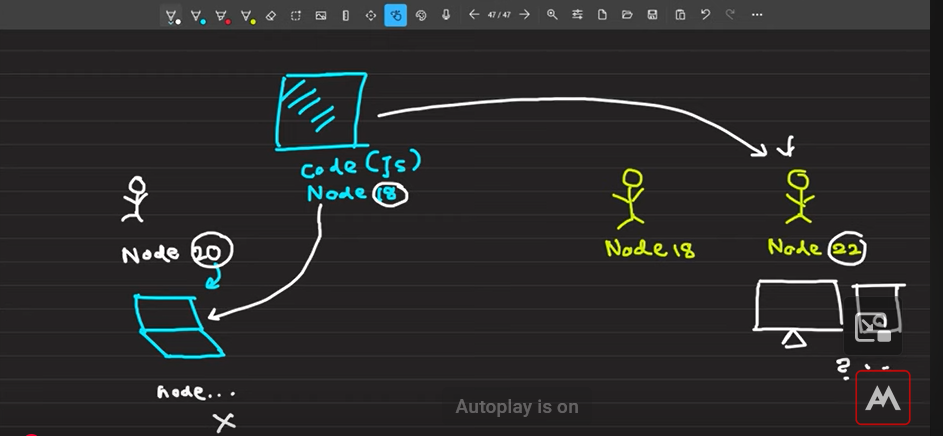 47 / 47
Code (Js)
Node 18
Node 20
Node 18
Node 22
node...
?
Autoplay is on